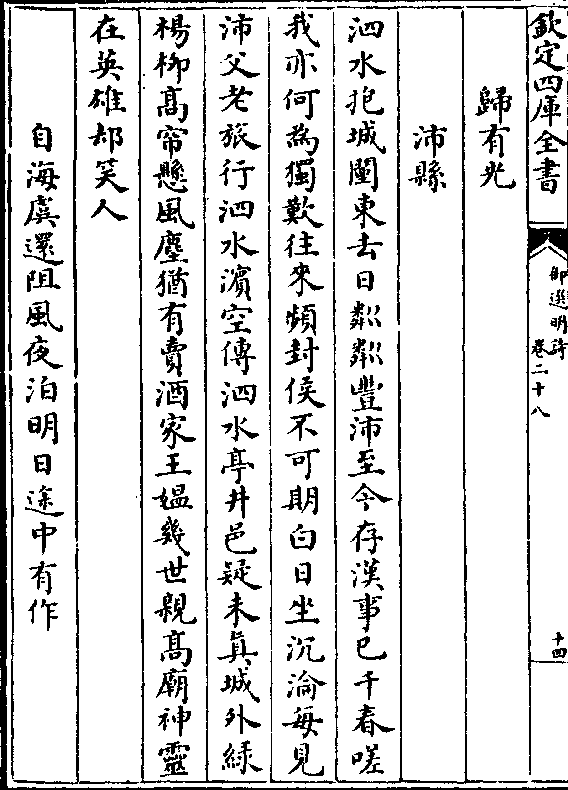 欽定四庫全書
御選明詩
卷二十八
十四
歸有光
沛縣
泗水抱城闉東去日粼粼豐沛至今存漢事已千春嗟
我亦何為獨歎往來頻封侯不可期白日坐沉淪每見
沛父老旅行泗水濱空傳泗水亭井邑疑未真城外緑
楊柳髙帘懸風塵猶有賣酒家王媼幾世親髙廟神靈
在英雄却笑人
自海虞還阻風夜泊明日途中有作